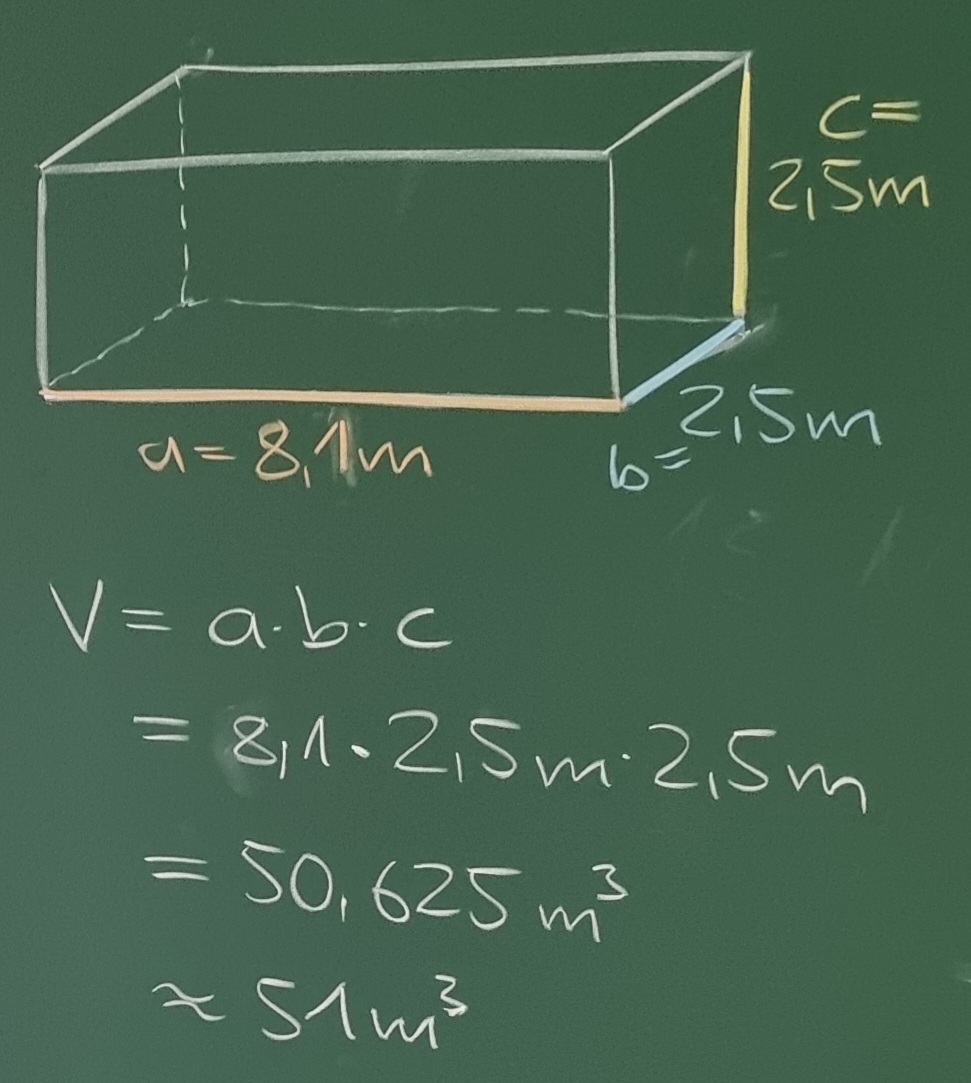 c=
2,5m
a=8,1m
b=2,5m
V=a·b·c
=8,1·2,5m·2,5m
=50,625m³
≈51m³